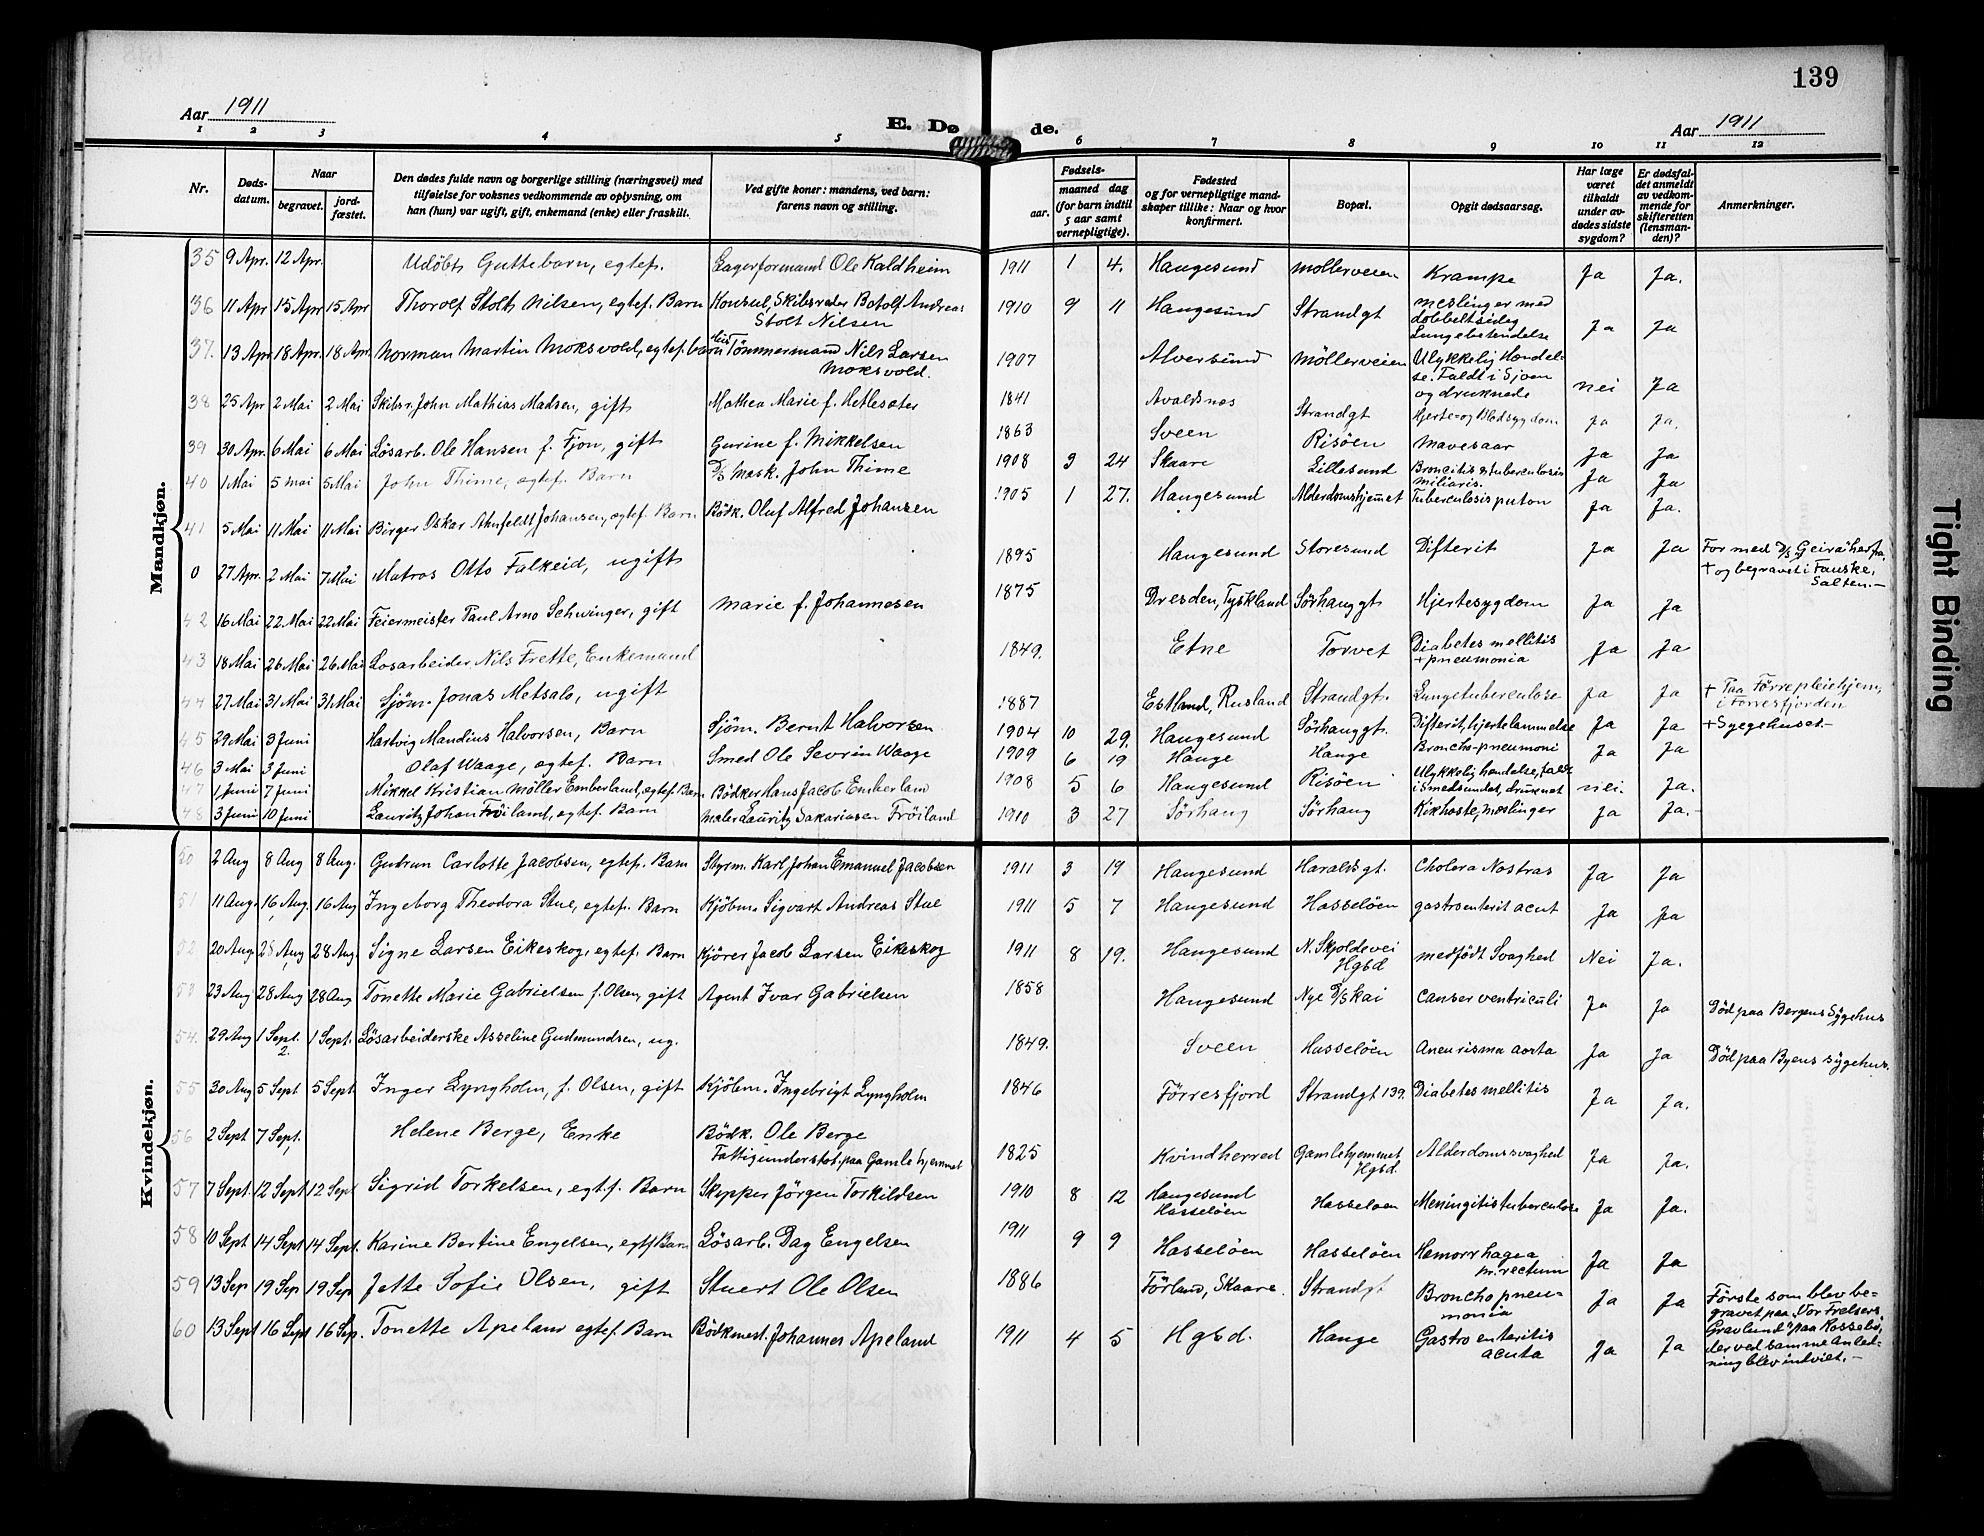 139
Aar 1911
E. Dø de.
Aar 1911
1 2 3 4 5 6 7 8 9 10 11 12
Nr.
Døds-
datum.
Naar
begravet.
jord-
fæstet.
Den dødes fulde navn og borgerlige stilling (næringsvei) med
tilføielse for voksnes vedkommende av oplysning, om
han (hun) var ugift, gift, enkemand (enke) eller fraskilt.
Ved gifte koner: mandens, ved barn:
farens navn og stilling.
Fødsels-
aar.
maaned dag
(for barn indtil
5 aar samt
vernepligtige).
Fødested
og for vernepligtige mand-
skaper tillike: Naar og hvor
konfirmert.
Bopæl.
Opgit dødsaarsag.
Har læge
været
tilkaldt
under av-
dødes sidste
sygdom?
Er dødsfal-
det anmeldt
av vedkom-
mende for
skifteretten
(lensman-
den)?
Anmerkninger.
Mandkjøn.
35 9 Apr. 12 Apr. Udöbt Guttebarn, egtef. Lagerformand Ole Kaldheim 1911 1 4. Haugesund Möllerveien Krampe Ja Ja.
36 11 Apr 15 Apr 15 Apr Thorolf Stolt Nilsen, egtef. Barn Konsul, Skibsreder Botolf Andreas
Stolt Nilsen 1910 9 11 Haugesund Strandgt Meslinger med
dobbeltsidig
Lungebetendelse Ja Ja
37. 13 Apr 18 Apr. 18 Apr. Norman Martin Moksvold, egtef. barn Tömmermand Nils Larsen
Moksvold. 1907 Alversund Möllerveien Ulykkelig Hændel-
se. Faldt i Sjöen
og druknede nei Ja
38 25 Apr 2 Mai 2 Mai Skibsr. John Mathias Madsen, gift Mathea Marie f. Hetleseter 1841 Avaldsnes Strandgt Hjerte- og Blodsygdom Ja Ja.
39 30 Apr. 6 Mai 6 Mai Løsarb. Ole Hansen f. Fjon, gift Gurine f. Mikkelsen 1863 Sveen Risöen Mavesaar Ja Ja
40 1 Mai 5 Mai 5 Mai John Thime, egtef. Barn D/S Mask. John Thime 1908 3 24 Skaare Lillesund Broncitis & tuberculosis
miliaris. Ja Ja
41 5 Mai 11 Mai 11 Mai Birger Oskar Ahnfeldt Johansen, egtef. Barn Bödk. Oluf Alfred Johansen 1905 1 27. Haugesund Alderdomshjemmet Tuberculosis pulon Ja Ja.
0 27 Apr. 2 Mai 7 Mai Matros Otto Falkeid, ugift 1895 Haugesund Storesund Difterit Ja Ja For med D/S "Geira" herfra,
+ og begravet i Fauske,
Salten.-
42 16 Mai 22 Mai 22 Mai Feiermeister Paul Arno Schwinger, gift Marie f. Johannesen 1875 Dresden, Tyskland Sörhauggt Hjertesygdom Ja Ja
43 18 Mai 26 Mai 26 Mai Losarbeider Nils Frette, Enkemand 1849. Etne Torvet Diabetes mellitis
+ pneumonia Ja Ja
44 27 Mai 31 Mai 31 Mai Sjöm. Jonas Metsalo, ugift 1887 Estland, Rusland Strandgt. Lungetuberculose Ja Ja + Paa Förrepleiehjem,
i Förresfjorden
45 29 Mai 3 Juni Hartvig Mandius Halvorsen, Barn Sjöm. Bernt Halvorsen 1904 10 29. Haugesund Sörhauggt. Difterit, hjertelammelse Ja Ja + Sygehuset.-
46 3 Mai 3 Juni Olaf Waage, egtef. Barn Smed Ole Sevrin Waage 1909 6 19 Hauge Hauge Broncho-pneumoni Ja Ja
47 1 Juni 7 Juni Mikkel Kristian Möller Emberland, egtef. Barn Bödker Hans Jacob Emberland 1908 5 6 Haugesund Risöen Ulykkelig hendelse, faldt
i Smedsundet, druknet nei. Ja.
48 3 Juni 10 Juni Lauritz Johan Fröiland, egtef. Barn Maler Lauritz Sakariasen Fröiland 1910 3 27 Sörhaug Sörhaug Kikhoste, mæslinger Ja Ja.-
Kvindekjøn.
50 2 Aug 8 Aug 8 Aug. Gudrun Carlotte Jacobsen, egtef. Barn Styrm. Karl Johan Emanuel Jacobsen 1911 3 19 Haugesund Haraldsgt. Cholera Nostras Ja Ja
51 11 Aug. 16 Aug. 16 Aug Ingeborg Theodora Stue, egtef. Barn Kjöbm. Sigvart Andreas Stue 1911 5 7 Haugesund Hasselöen gastroenterit acut Ja Ja
52 20 Aug 28 Aug 28 Aug. Signe Larsen Eikeskog, egtef. Barn Kjörer Jacob Larsen Eikeskog 1911 8 19. Haugesund N. Skjoldevei
Hgsd medfödt Svaghed Nei Ja.
53 23 Aug 28 Aug 28 Aug Tonette Marie Gabrielsen f. Olsen, gift Agent Ivar Gabrielsen 1858 Haugesund Nye D/S kai Canser ventriculi Ja Ja Död paa Bergens Sygehus
54. 29 Aug 1 Sept.
2. 1 Sept. Lösarbeiderske Asseline Gudmundsen, ug. 1849. Sveen Hasselöen Aneurisma aorta Ja Ja Död paa Byens sygehus.
55 30 Aug 5 Sept 5 Sept Inger Lyngholm, f. Olsen, gift Kjöbm. Ingebrigt Lyngholm 1846 Förresfjord Strandgt 139. Diabetes mellitis Ja Ja.
56 2 Sept 7 Sept. Helene Berge, Enke Bödk. Ole Berge
Fattigunderstöt. paa Gamlehjemmet 1825 Kvindherred Gamlehjemmet
Hgsd. Alderdomssvaghed Ja Ja.
57 7 Sept. 12 Sept 12 Sept Sigrid Torkelsen, egtf. Barn Skipper Jörgen Torkildsen 1910 8 12 Haugesund
Hasselöen Hasseloen Meningitis tuberculose Ja Ja.
58 10 Sept 14 Sept 14 Sept. Karine Bertine Engelsen, egtf Barn Lösarb. Dag Engelsen 1911 9 9 Hasselöen Hasselöen Hemorrhagea
pr. rectum Ja Ja
59 13 Sep 19 Sep 19 Sep Jette Sofie Olsen, gift Stuert Ole Olsen 1886 Förland, Skaare Strandgt Bronchopneu-
monia Ja Ja Förste som blev be-
gravet paa "Vor Frelsers
Gravlund" paa Rosseb.,
der ved samme Anled-
ning blev indviet.-
60 13 Sept 16 Sept 16 Sep. Tonette Apeland egtef. Barn Bödkmest. Johannes Apeland 1911 4 5 Hgsd. Hauge Gastro enteritis
acuta Ja Ja
Tight Binding